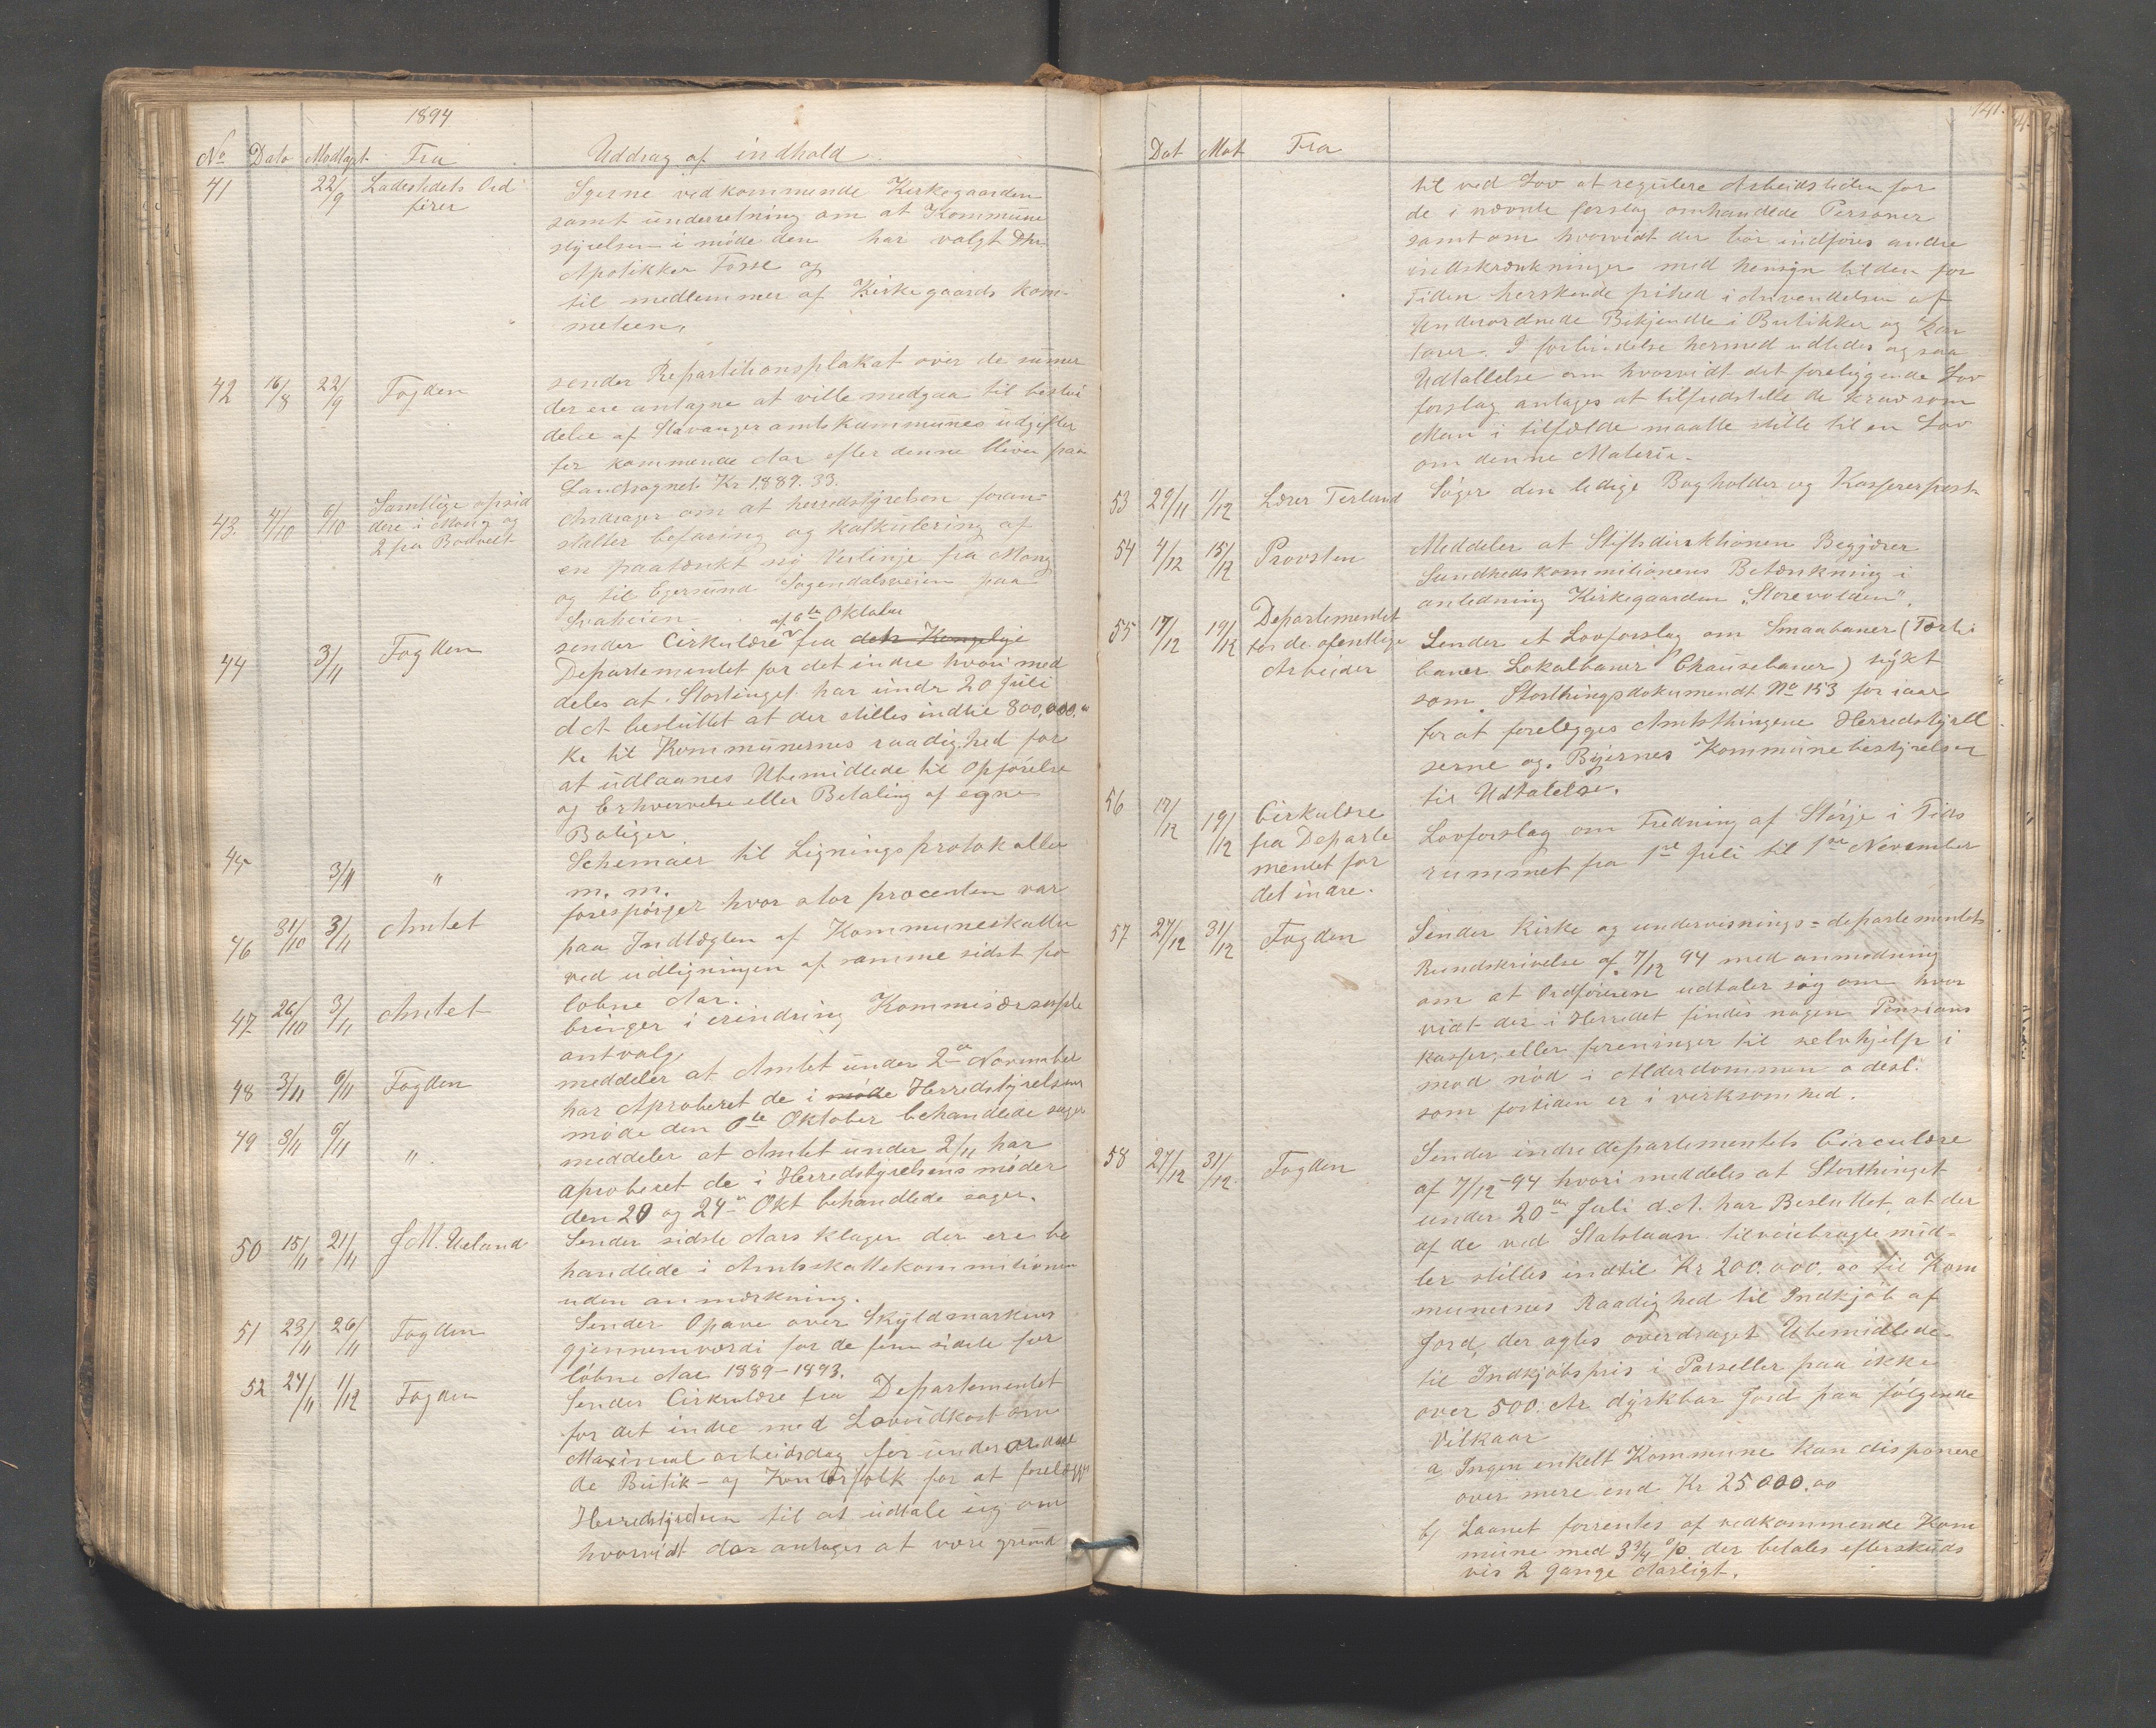 1894
No Dato Modtaget Fra Uddrag af indhold
41 22/9 Ladestedets Ord
fører
Sgerne vedkommende Kirkegaarden
samt underretning om at Kommune
styrelsen i møde den har valgt Dhr
Apotikker Fosse og
til medlemmer af Kirkegaards kom-
meteen.
42 16/8 22/9 Fogden
sender Repartitionsplakat over de summer
der ere antagne at ville medgaa til bestri
delse af Stavanger amts Kommunes udgifter
for kommende Aar efter denne bliver paa
Landsognet Kr 1887.33.
43. 4/10 6/10 Samtlige opsid
dere i Mong og
2 fra Bodvelt
Andrager om at herredstyrelsen foran-
stalter befaring og kalkulering af
en paatænkt ny Veilinje fra Mong
og til Egersund Sogendalsveien paa
Svaheien
44 3/11 Fogden
af 6te Oktober
sender Cirkulære fra det Kongelige
Departementet for det indre hvori med
deles at Stortinget har undr 20 Juli
d A besluttet at der stilles indtil 800,000.
Kr til Kommunernes raadighed for
at udlaanes Ubemidlede til Opførelse
og Erhvervelse eller Betaling af egne
Boliger
45 3/11 "
Schemaer til Ligningsprotokoller
m. m.
46 31/10 3/11 Amtet
forespørger hvor stor procenten var
paa Indtægten af Kommuneskatten
ved udligningen af samme sidst for
løbne Aar.
47 26/10 3/11 Amtet
bringer i erindring Kommisærsuple
antvalg
48 3/11 6/11 Fogden
meddeler at Amtet under 2den November
har Aproberet de i møde Herredstyrelsens
møde den 6te Oktober behandlede sager
49 3/11 6/11 "
meddeler at Amtet under 2/11 har
aproberet de i Herredstyrelsens møder
den 20 og 24de Okt behandlede sager.
50 15/11 21/11 J M. Ueland
Sender sidste Aars klager der ere be
handlede i Amtsskattekommitionen
uden anmærkning.
51 23/11 26/11 Fogden
Sender Opave over Skyldmarkens
gjennemværdi for de fem sidste for
løbne Aar 1889-1893.
52 24/11 1/12 Fogden
Sender Cirkulære fra Departementet
for det indre med Lovudkast om
Maximal arbeidsdag for underordne
de Butik- og Kontorfolk for at forelægges
Herredstyrelsen til at udtale sig om
hvorvidt der antages at være grund
141.
Dat Mot Fra
til ved Lov at regulere Arbeidstiden for
de i nævnte forslag omhandlede Personer
samt om hvorvidt der bør indføres andre
indskrænkninger med hensyn til den for
Tiden herskende frihed i Anvendelsen af
Underordnede Betjendte i Butikker og Kon
torer. I forbindelse hermed udbedes ogsaa
Udtallelse om hvorvidt det foreliggende Lov
forslag antages at tilfredstille de krav som
Man i tilfælde maatte stille til en Lov
om denne Materie.
53 29/11 1/12 Lærer Terland
Søger den ledige Bogholder og Kassererpost
54 4/12 15/12 Provsten
Meddeler at Stiftsdirektionen Begjærer
Sundhedskommitionens Betænkning i
anledning Kirkegaarden "Storevolden".
55 17/12 19/12 Departementet
for de ofentlige
Arbeider
Sender et Lovforslag om Smaabaner (Terti
baner Lokalbaner Chausebaner) trykt
som Storthingsdokumendt No 153 for iaar
for at forelægges Amtsthingene Herredstyrel
serne og Byernes Kommunebestyrelser
til Udtalelse.
56 17/12 19/12 Cirkulære
fra Departe
mentet for
det indre.
Lovforslag om Fredning af Størje i Tids
rummet fra 1ste Juli til 1ste November
57 27/12 31/12 Fogden
Sender Kirke og undervisnings=departementets
Rundskrivelse af 7/12 94 med anmodning
om at Ordføreren udtaler sig om hvor
vidt der i Herredet findes nogen Pensions
kasser, eller foreninger til selvhjelp i
mod nød i Alderdommen o desl.
som fortiden er i virksomhed.
58 27/12 31/12. Fogden
Sender indredepartementets Circulære
af 7/12-94 hvori meddeles at Storthinget
under 20de Juli d.A. har Besluttet, at der
af de ved Statslaan tilveiebragte mid-
ler stilles indtil Kr 200.000.00 til Kom
munernes Raadighed til Indkjøb af
Jord, der agtes overdraget Ubemidlede
til Indkjøbspris i Parseller paa ikke
over 500. Ar dyrkbar Jord paa følgende
Vilkaar
a, Ingen enkelt Kommune kan disponere
over mere end Kr 25000.00
b, Laanet forrentes af vedkommende Kom
mune med 3 3/4 % der betales efterskuds
vis 2 gange Aarligt.